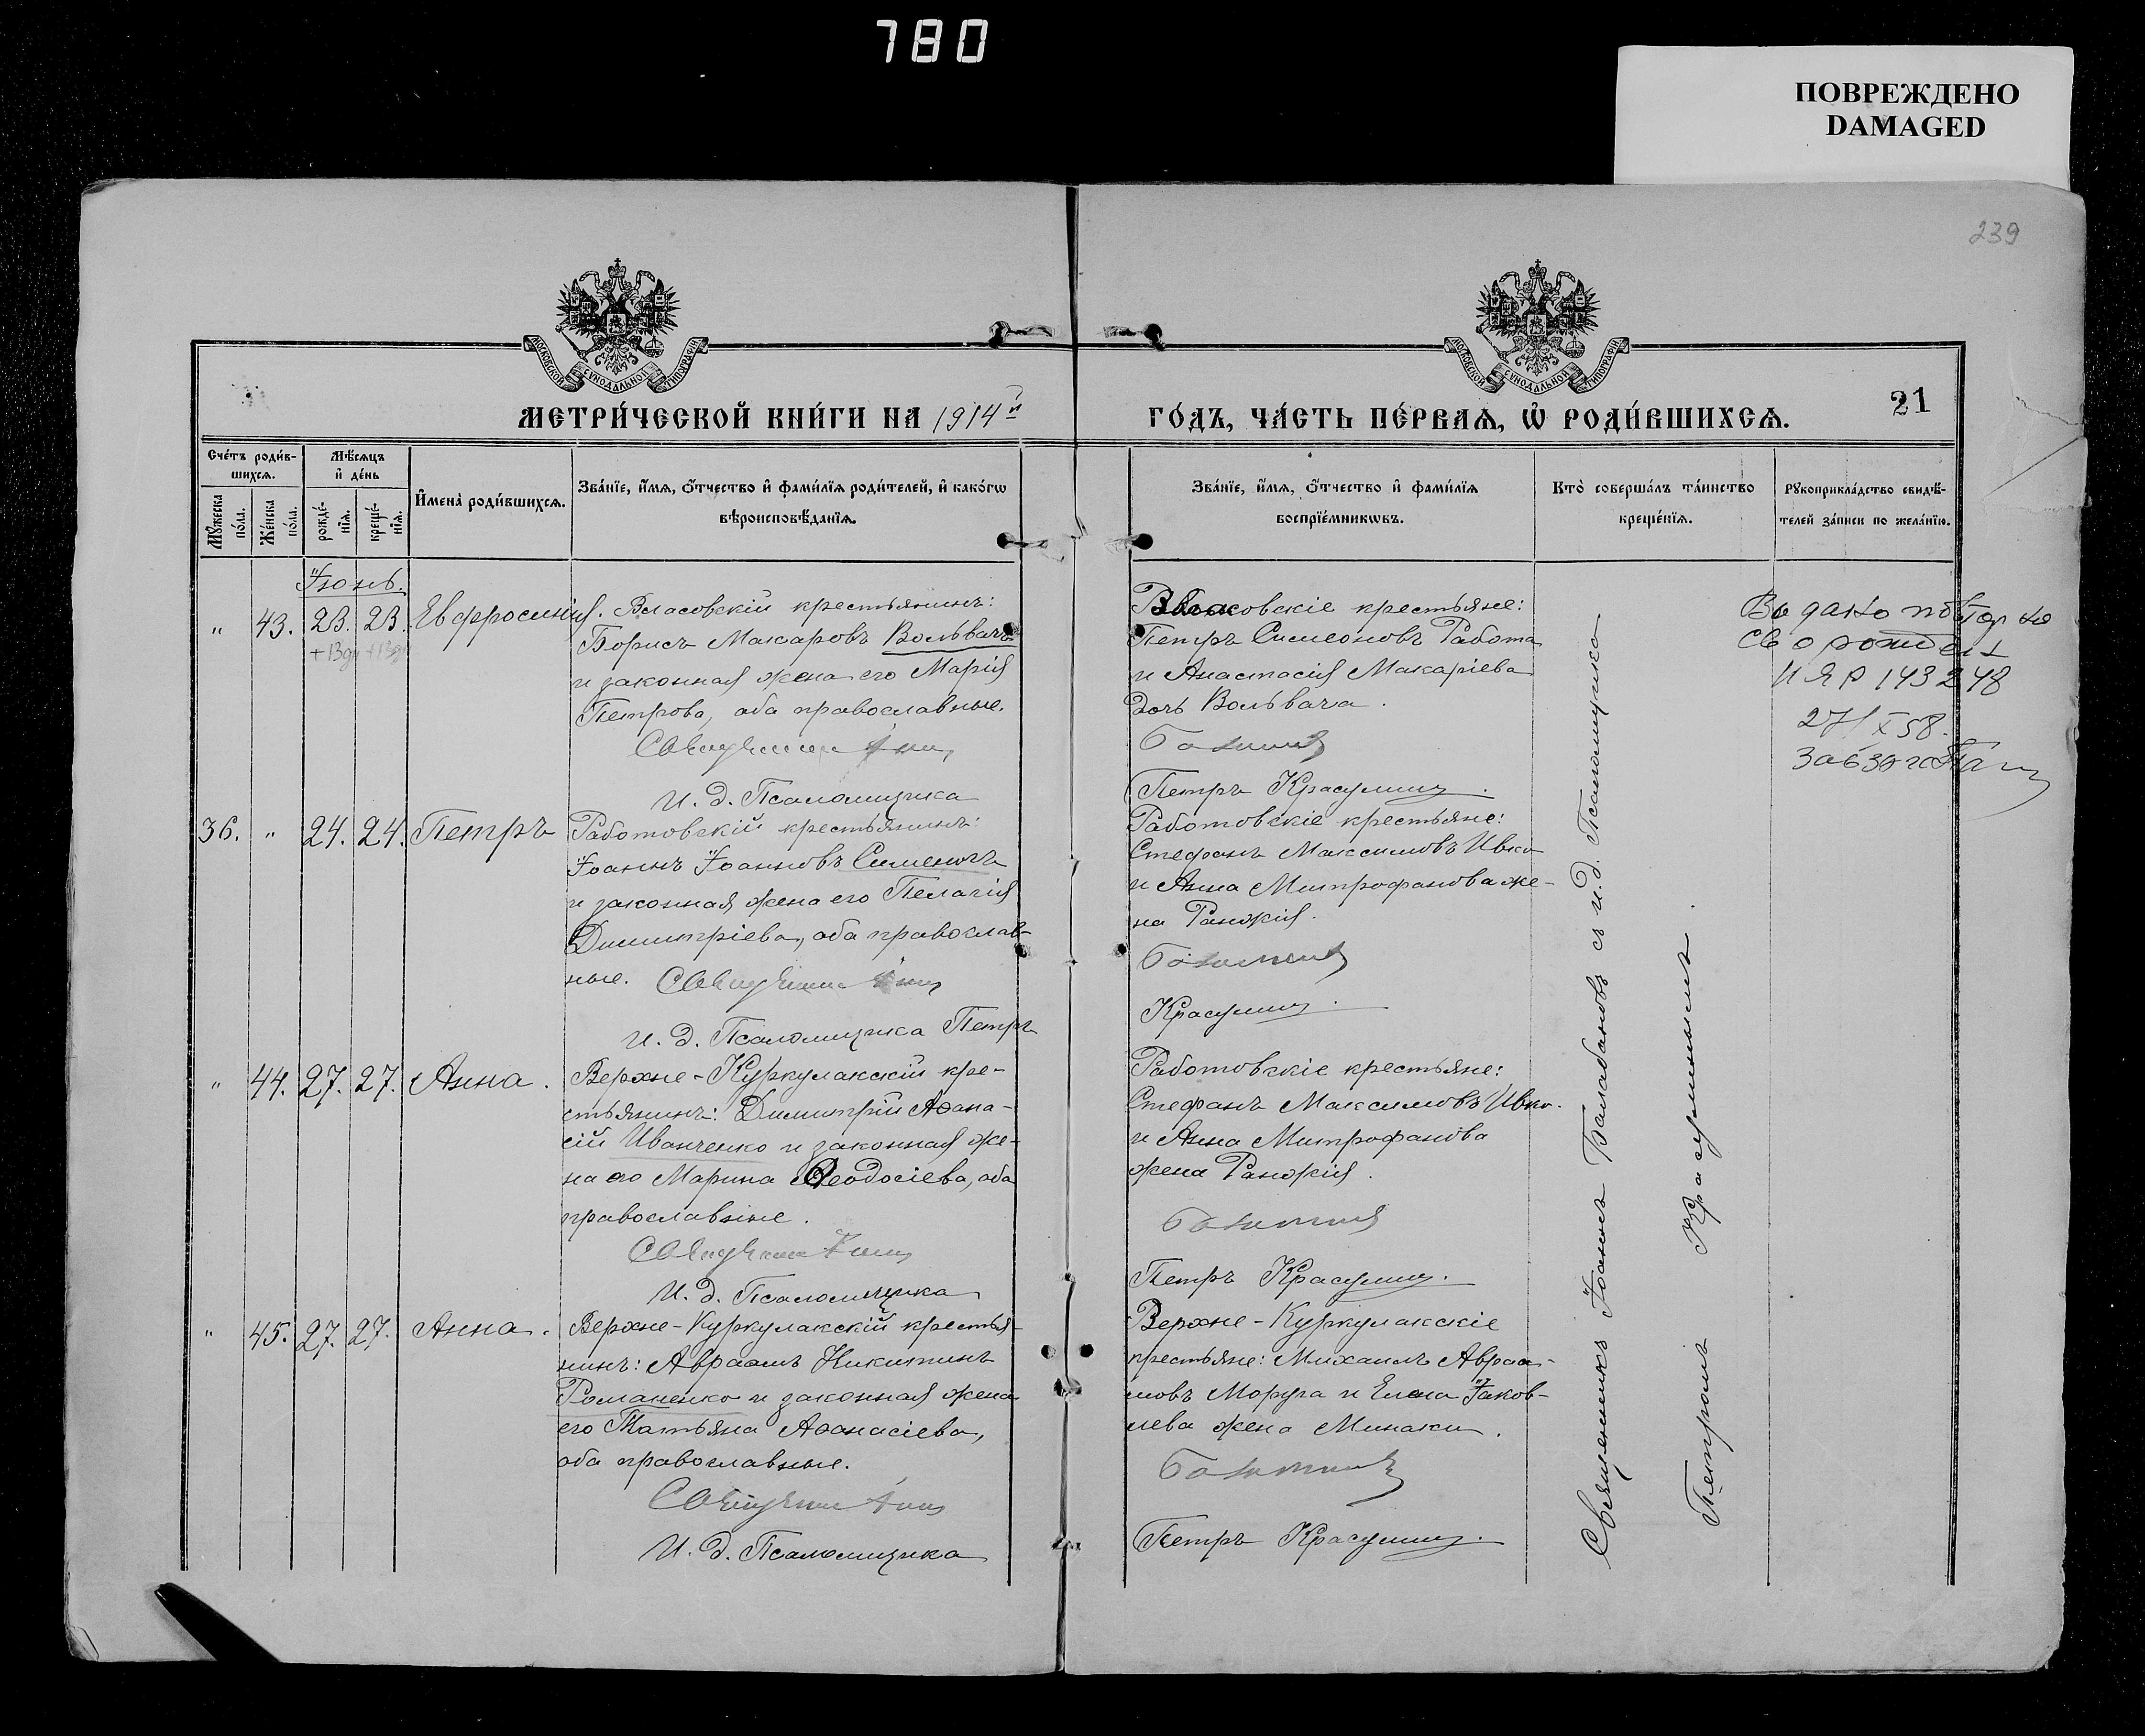 780
ПОВРЕЖДЕНО
DAMAGED
239
МОСКОВСКОЙ СѴНОДАЛЬНОЙ ТИПОГРАФІИ
МОСКОВСКОЙ СѴНОДАЛЬНОЙ ТИПОГРАФІИ
МЕТРИ́ЧЕСКОЙ КНИ́ГИ НА 1914й
ГО́ДЪ, ЧА́СТЬ ПЕ́РВАѦ, Ѡ҆ РОДИ́ВШИХСѦ.
21
Сче́тъ роди́в-
шихсѧ.
Мꙋ́жеска по́ла.
Же́нска по́ла.
Мѣ́сѧцъ
и҆ де́нь
рожде́-
нїѧ.
креще́-
нїѧ.
И҆мена̀ роди́вшихсѧ.
Зва́нїе, и҆́мѧ, ѻ҆́тчество и҆ фами́лїѧ роди́телей, и҆ како́гѡ
вѣроисповѣ́данїѧ.
Зва́нїе, и҆́мѧ, ѻ҆́тчество и҆ фами́лїѧ
воспрїе́мникѡвъ.
Кто̀ соверша́лъ та́инство
креще́нїѧ.
Рꙋкоприкла́дство свидѣ́-
телей за́писи по жела́нїю.
Іюнь.
" 43. 23. 23. Евфросинія.
Власовскій крестьянинъ:
Борисъ Макаровъ Вольвачъ
и законная жена его Марія
Петрова, оба православные.
И. д. Псаломщика
Власовскіе крестьяне:
Петръ Симеоновъ Работа
и Анастасія Макаріева
дочь Вольвача.
Петръ Красулинъ.
Выдано повторно
св о рожден
ИЯР 143248
27/X 58.
36. " 24. 24. Петръ
Работовскій крестьянинъ:
Іоаннъ Іоанновъ Сименогъ
и законная жена его Пелагія
Димитріева, оба православ-
ные.
И. д. Псаломщика Петръ
Работовскіе крестьяне:
Стефанъ Максимовъ Ивко
и Анна Митрофанова же-
на Ранжія.
Красулинъ.
" 44. 27. 27. Анна.
Верхне-Куркулакскій кре-
стьянинъ: Димитрій Аѳана-
сій Иванченко и законная же-
на его Марина Ѳеодосіева, оба
православные.
И. д. Псаломщика
Работовскіе крестьяне:
Стефанъ Максимовъ Ивко.
и Анна Митрофанова
жена Ранжія.
Петръ Красулинъ.
" 45. 27. 27. Анна.
Верхне-Куркулакскій крестья-
нинъ: Авраамъ Никитинъ
Романенко и законная жена
его Татьяна Аѳанасіева,
оба православные.
И. д. Псаломщика
Верхне-Куркулакскіе
крестьяне: Михаилъ Авраа-
мовъ Моруга и Елена Іаков-
лева жена Минаки.
Петръ Красулинъ.
Священникъ Іоаннъ Балабановъ съ и.д. Псаломщика
Петромъ Красулинымъ.